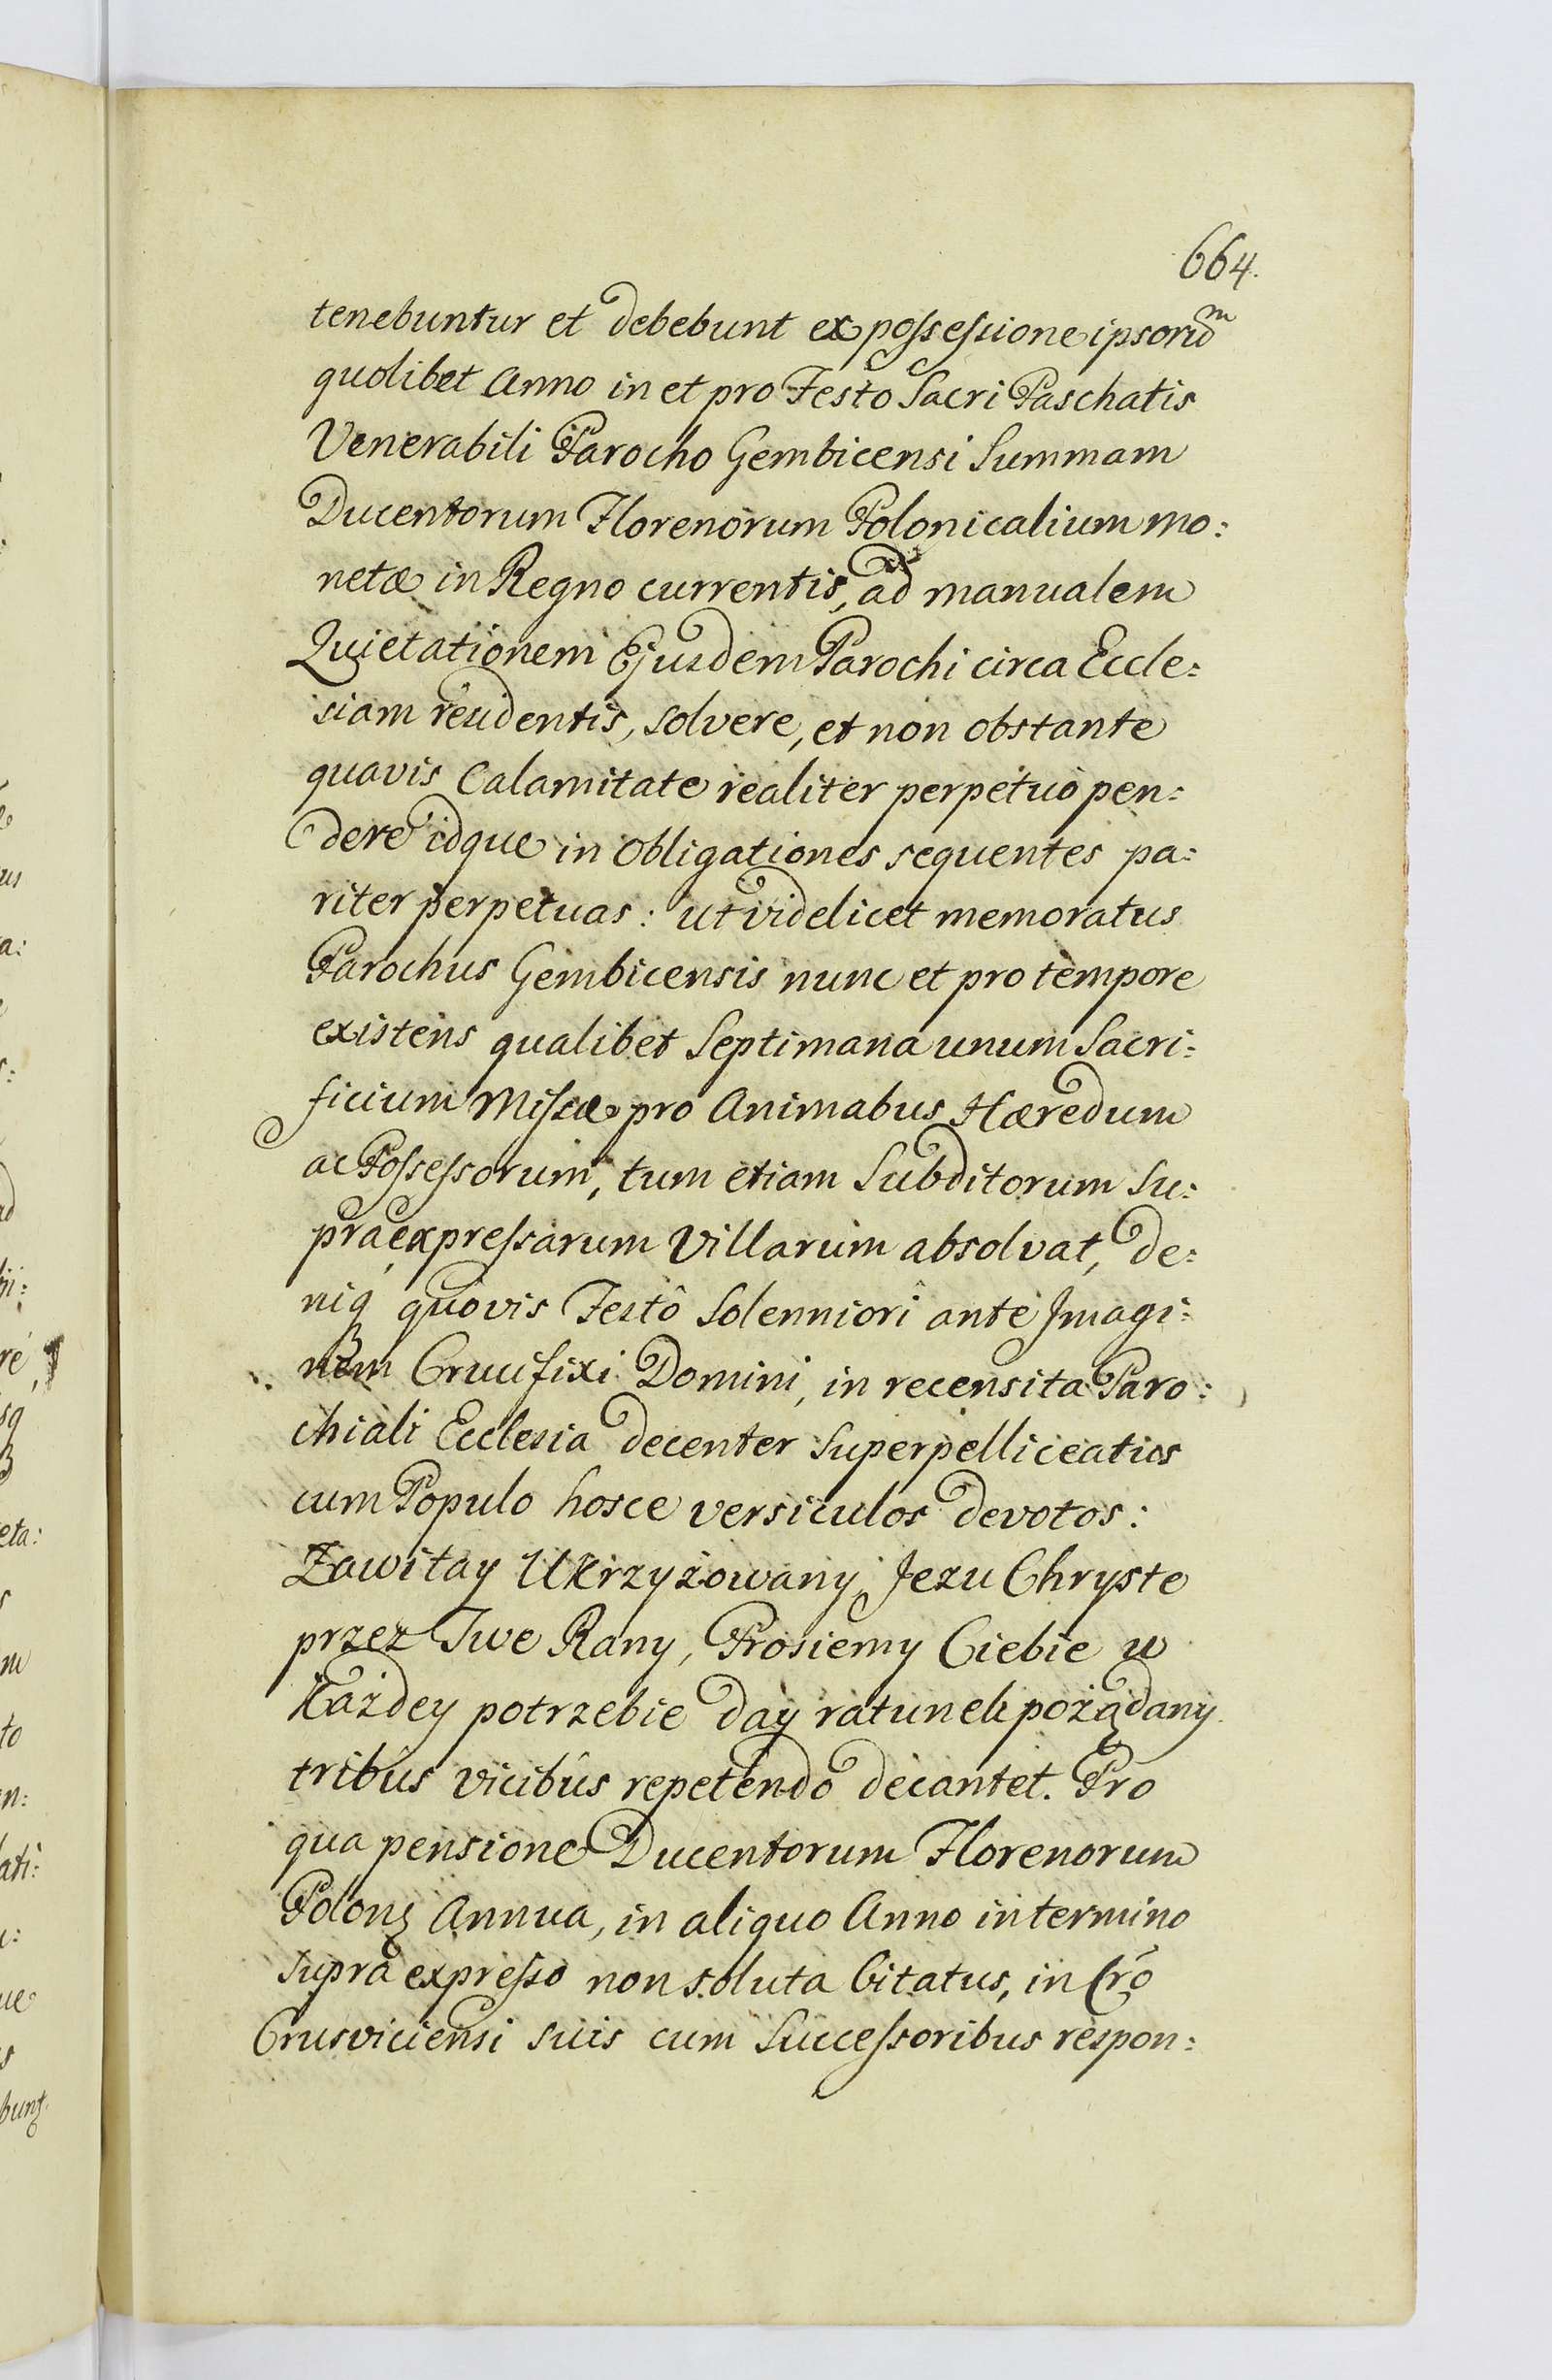 664.
tenebuntur et debebunt ex possessione ipsorũ
quolibet Anno in et pro Festo Sacri Paschatis
Venerabili Parocho Gembicensi Summam
Ducentorum Florenorum Polonicalium mo:
netæ in Regno currentis, ad manualem
Quietationem Ejusdem Parochi circa Eccle:
siam residentis, solvere, et non obstante
quavis Calamitate realiter perpetuò pen:
dere idque in Obligationes sequentes pa:
riter perpetuas: ut videlicet memoratus
Parochus Gembicensis nunc et pro tempore
existens qualibet Septimana unum Sacri:
ficium Missæ pro Animabus Hæredum
ac Possessorum, tum etiam Subditorum Su:
praexpressarum Villarum absolvat, de:
niq quovis Festô Solenniorî ante Imagi:
nem Crucifixi Domini, in recensita Paro:
chiali Ecclesia decenter Superpelliceatus
cum Populo hosce versiculos devotos:
Zawitay Ukrzyżowany Jezu Chryste
przez Twe Rany, Prosiemy Ciebie w
Każdey potrzebie day ratunek pożądany
tribûs vicibûs repetendo decantet. Pro
qua pensione Ducentorum Florenorum
Polonꝫ Annua, in aliquo Anno in termino
supra expresso non soluta Citatus, in Crõ
Crusviciensi suis cum Successoribus respon: